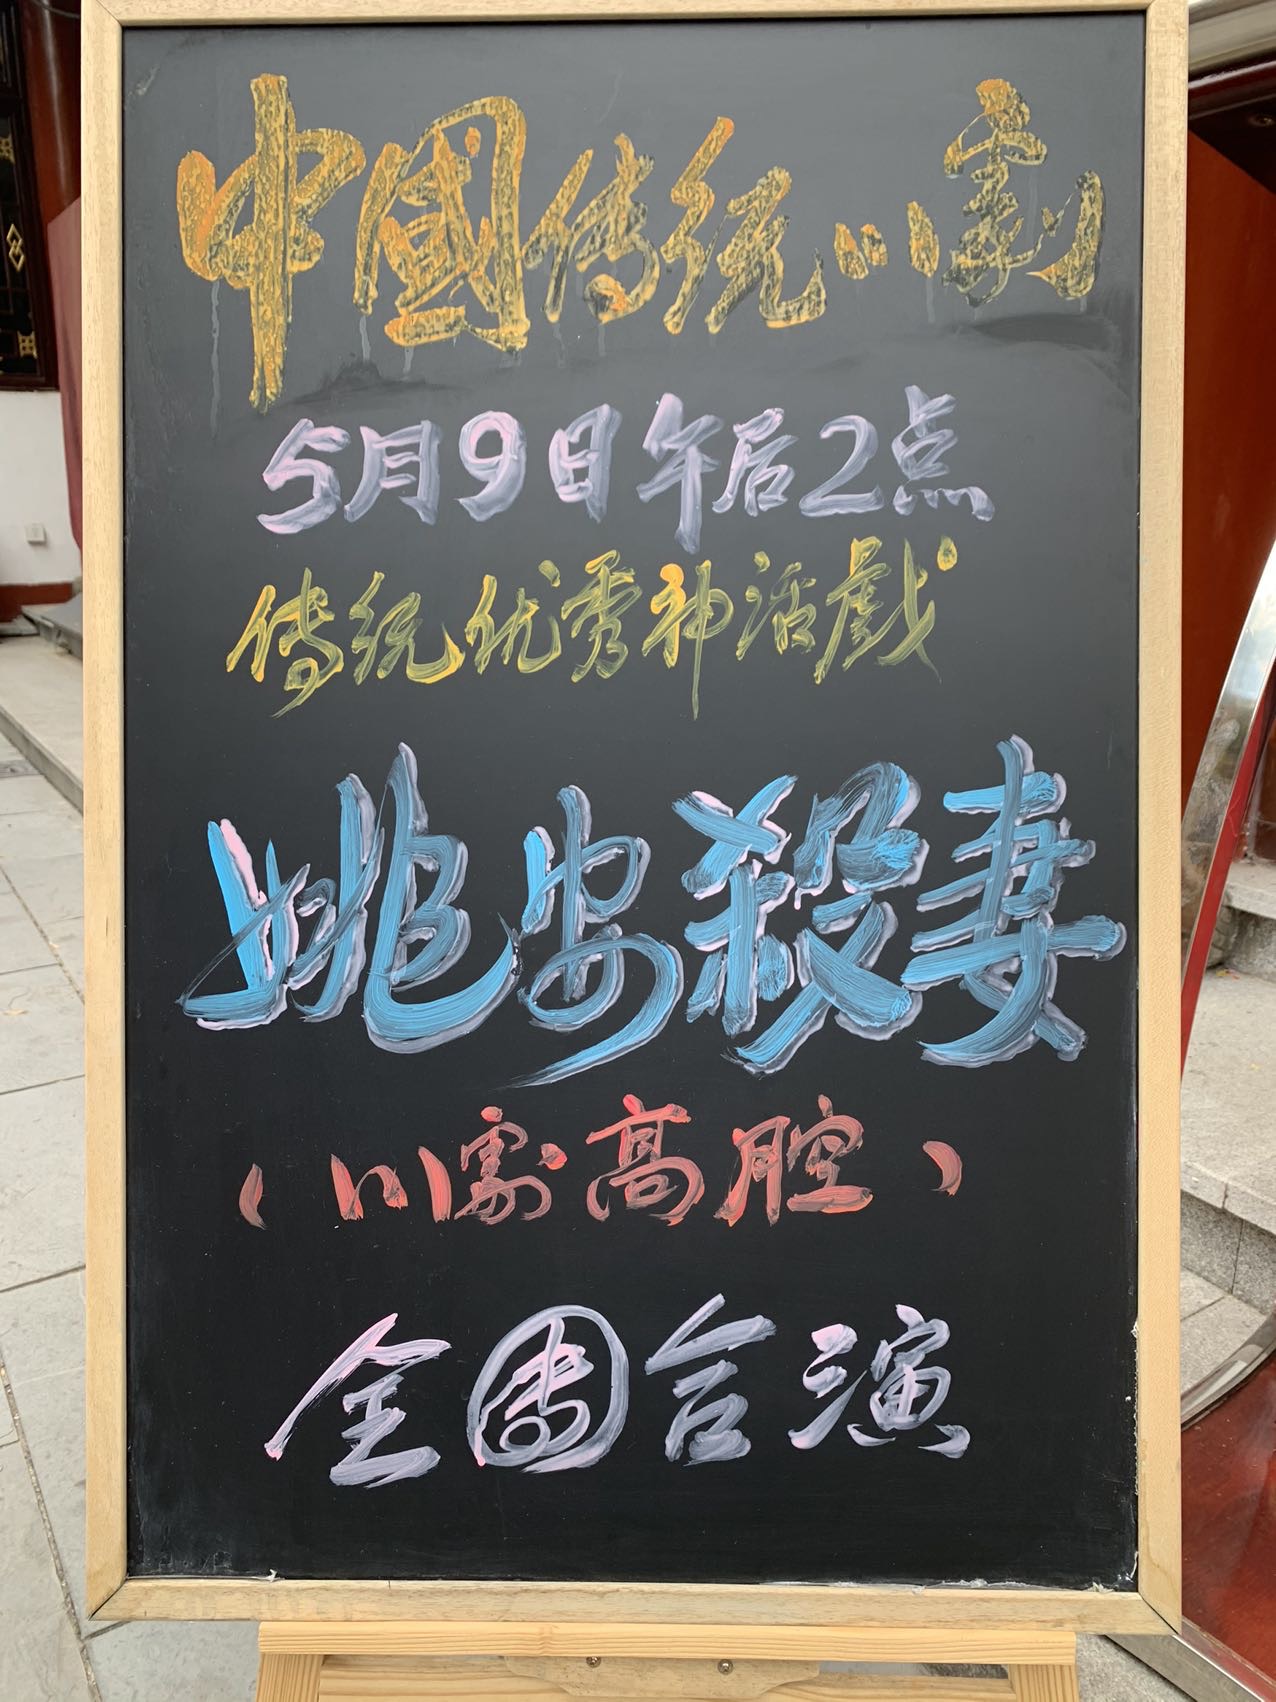 中國传统川劇
5月9日午后2点
传统优秀神话戲
姚安殺妻
(川劇高腔)
全團合演